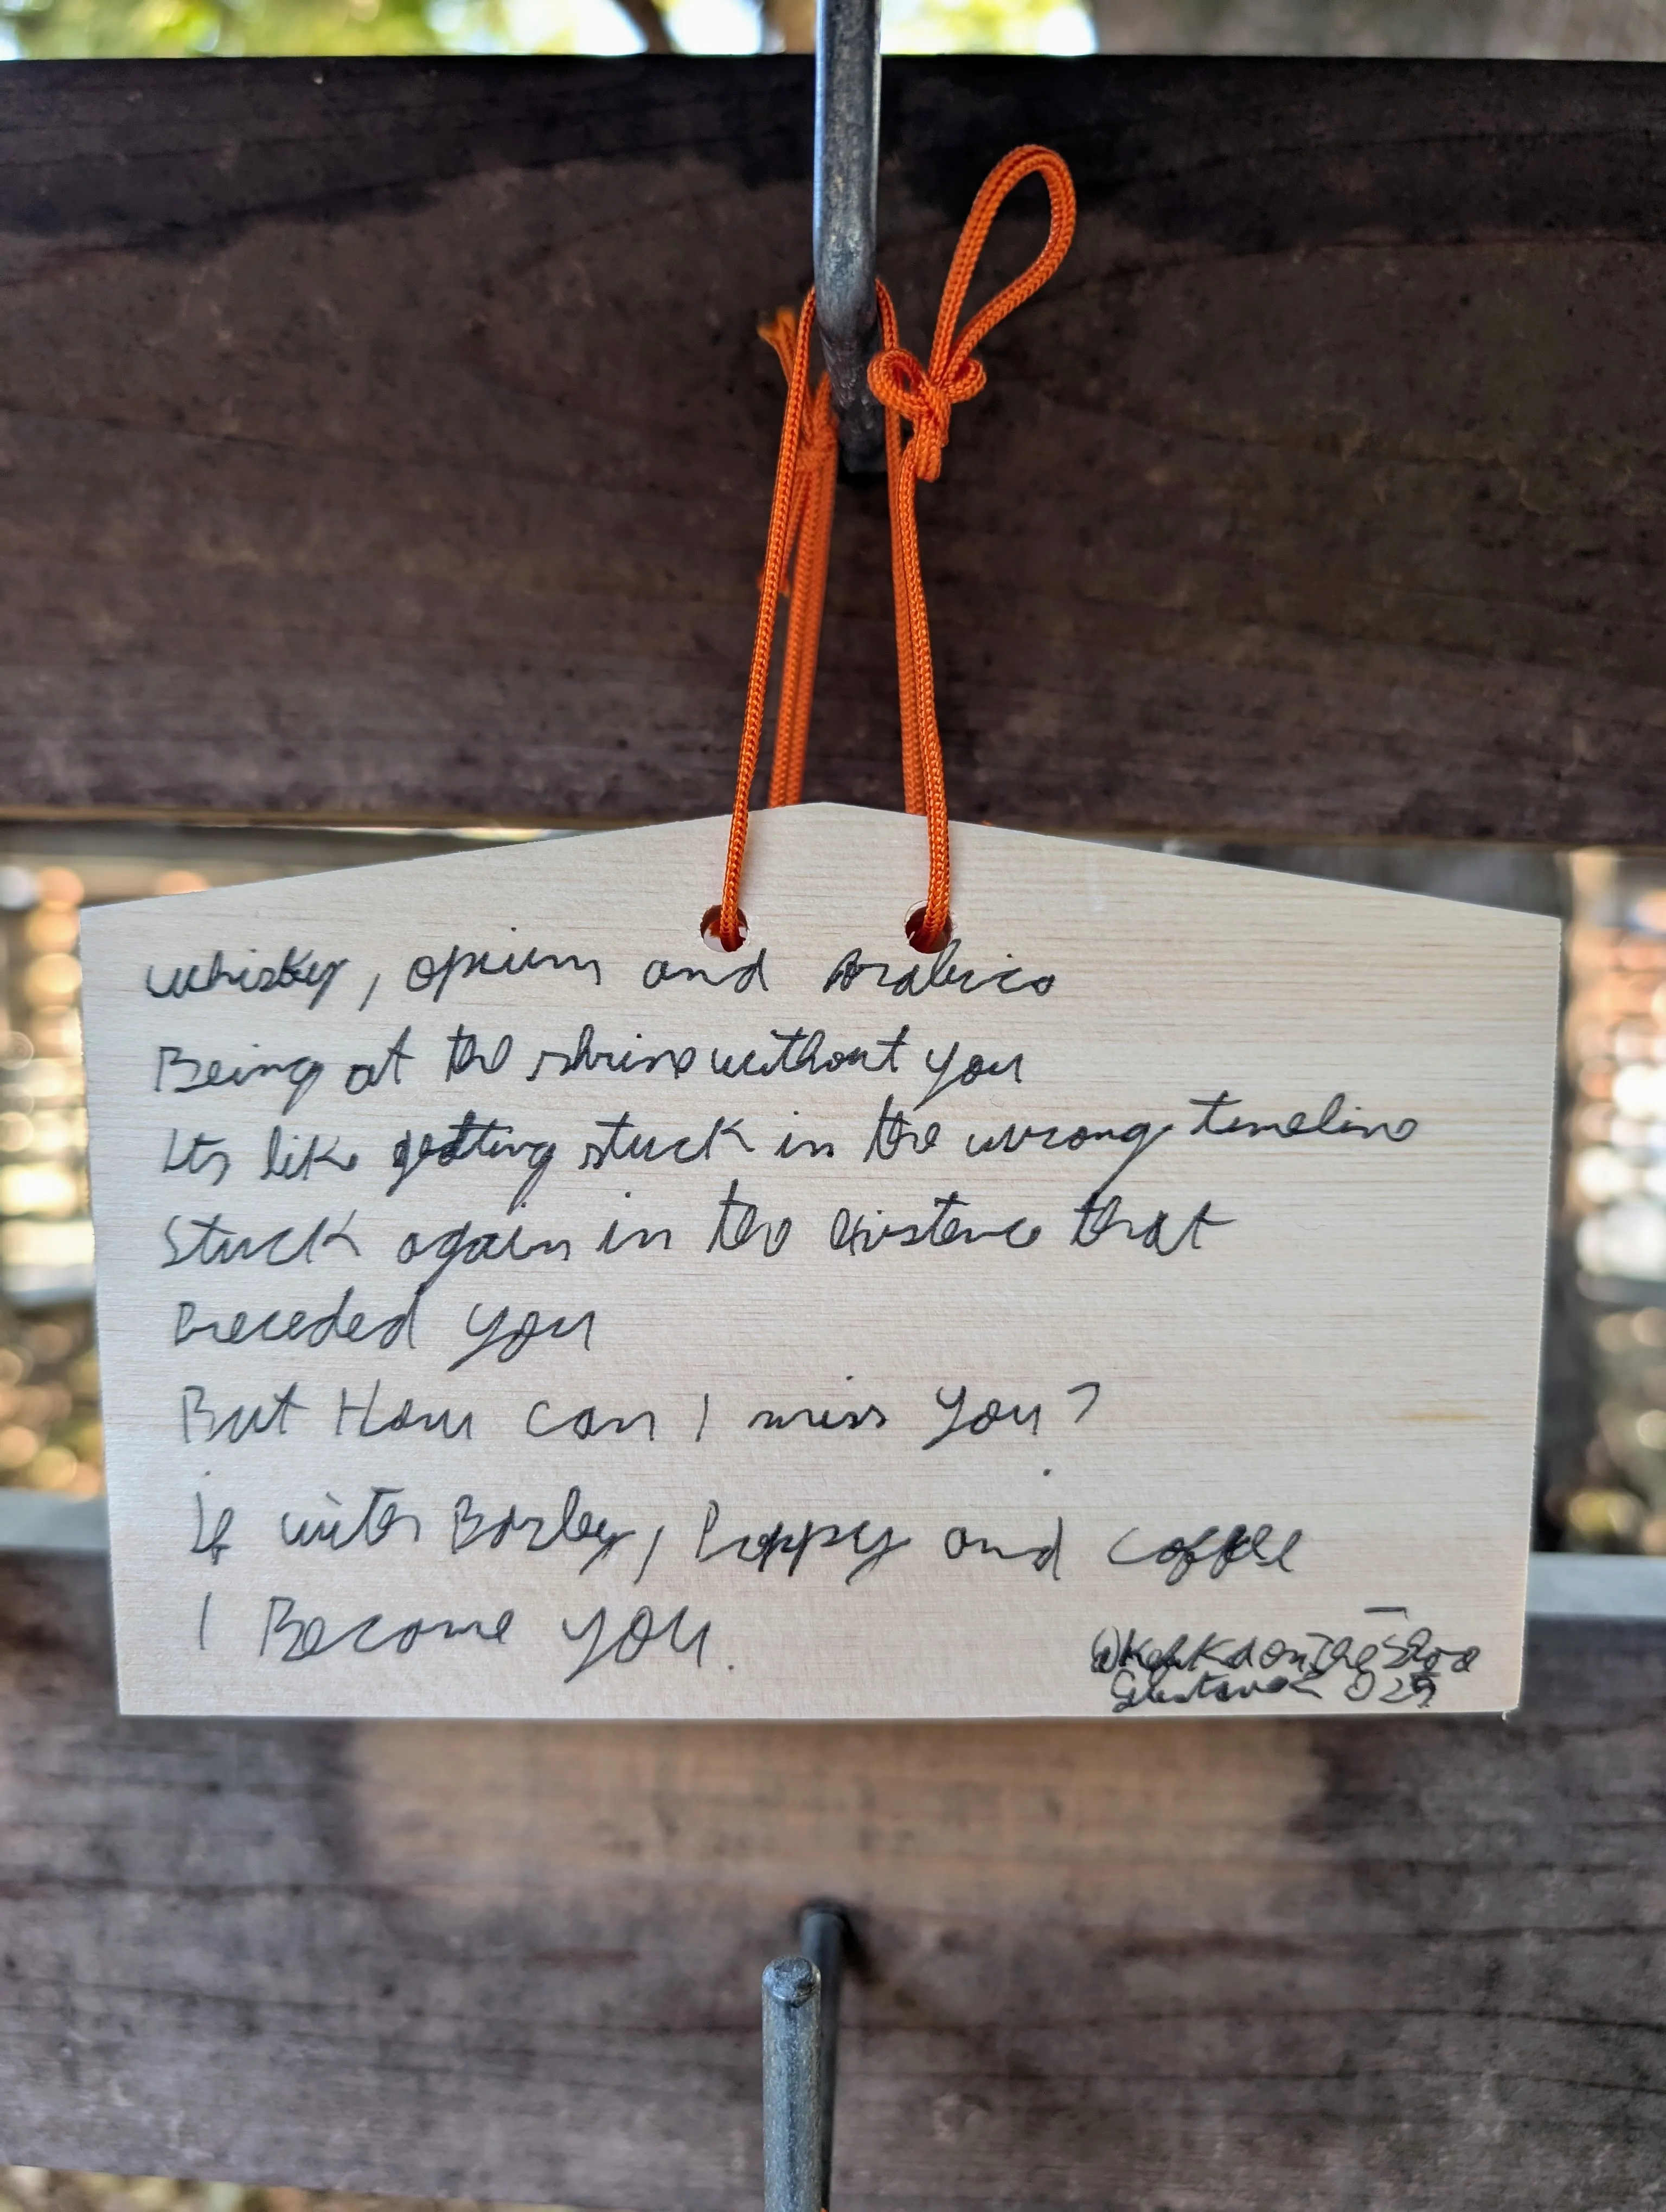 Whisky, opium and Arabica
Being at the shrine without you
Its like getting stuck in the wrong timeline
Stuck again in the existence that
Preceded you
But How can I miss you?
If with Barley, Poppy and coffee
I Become you.